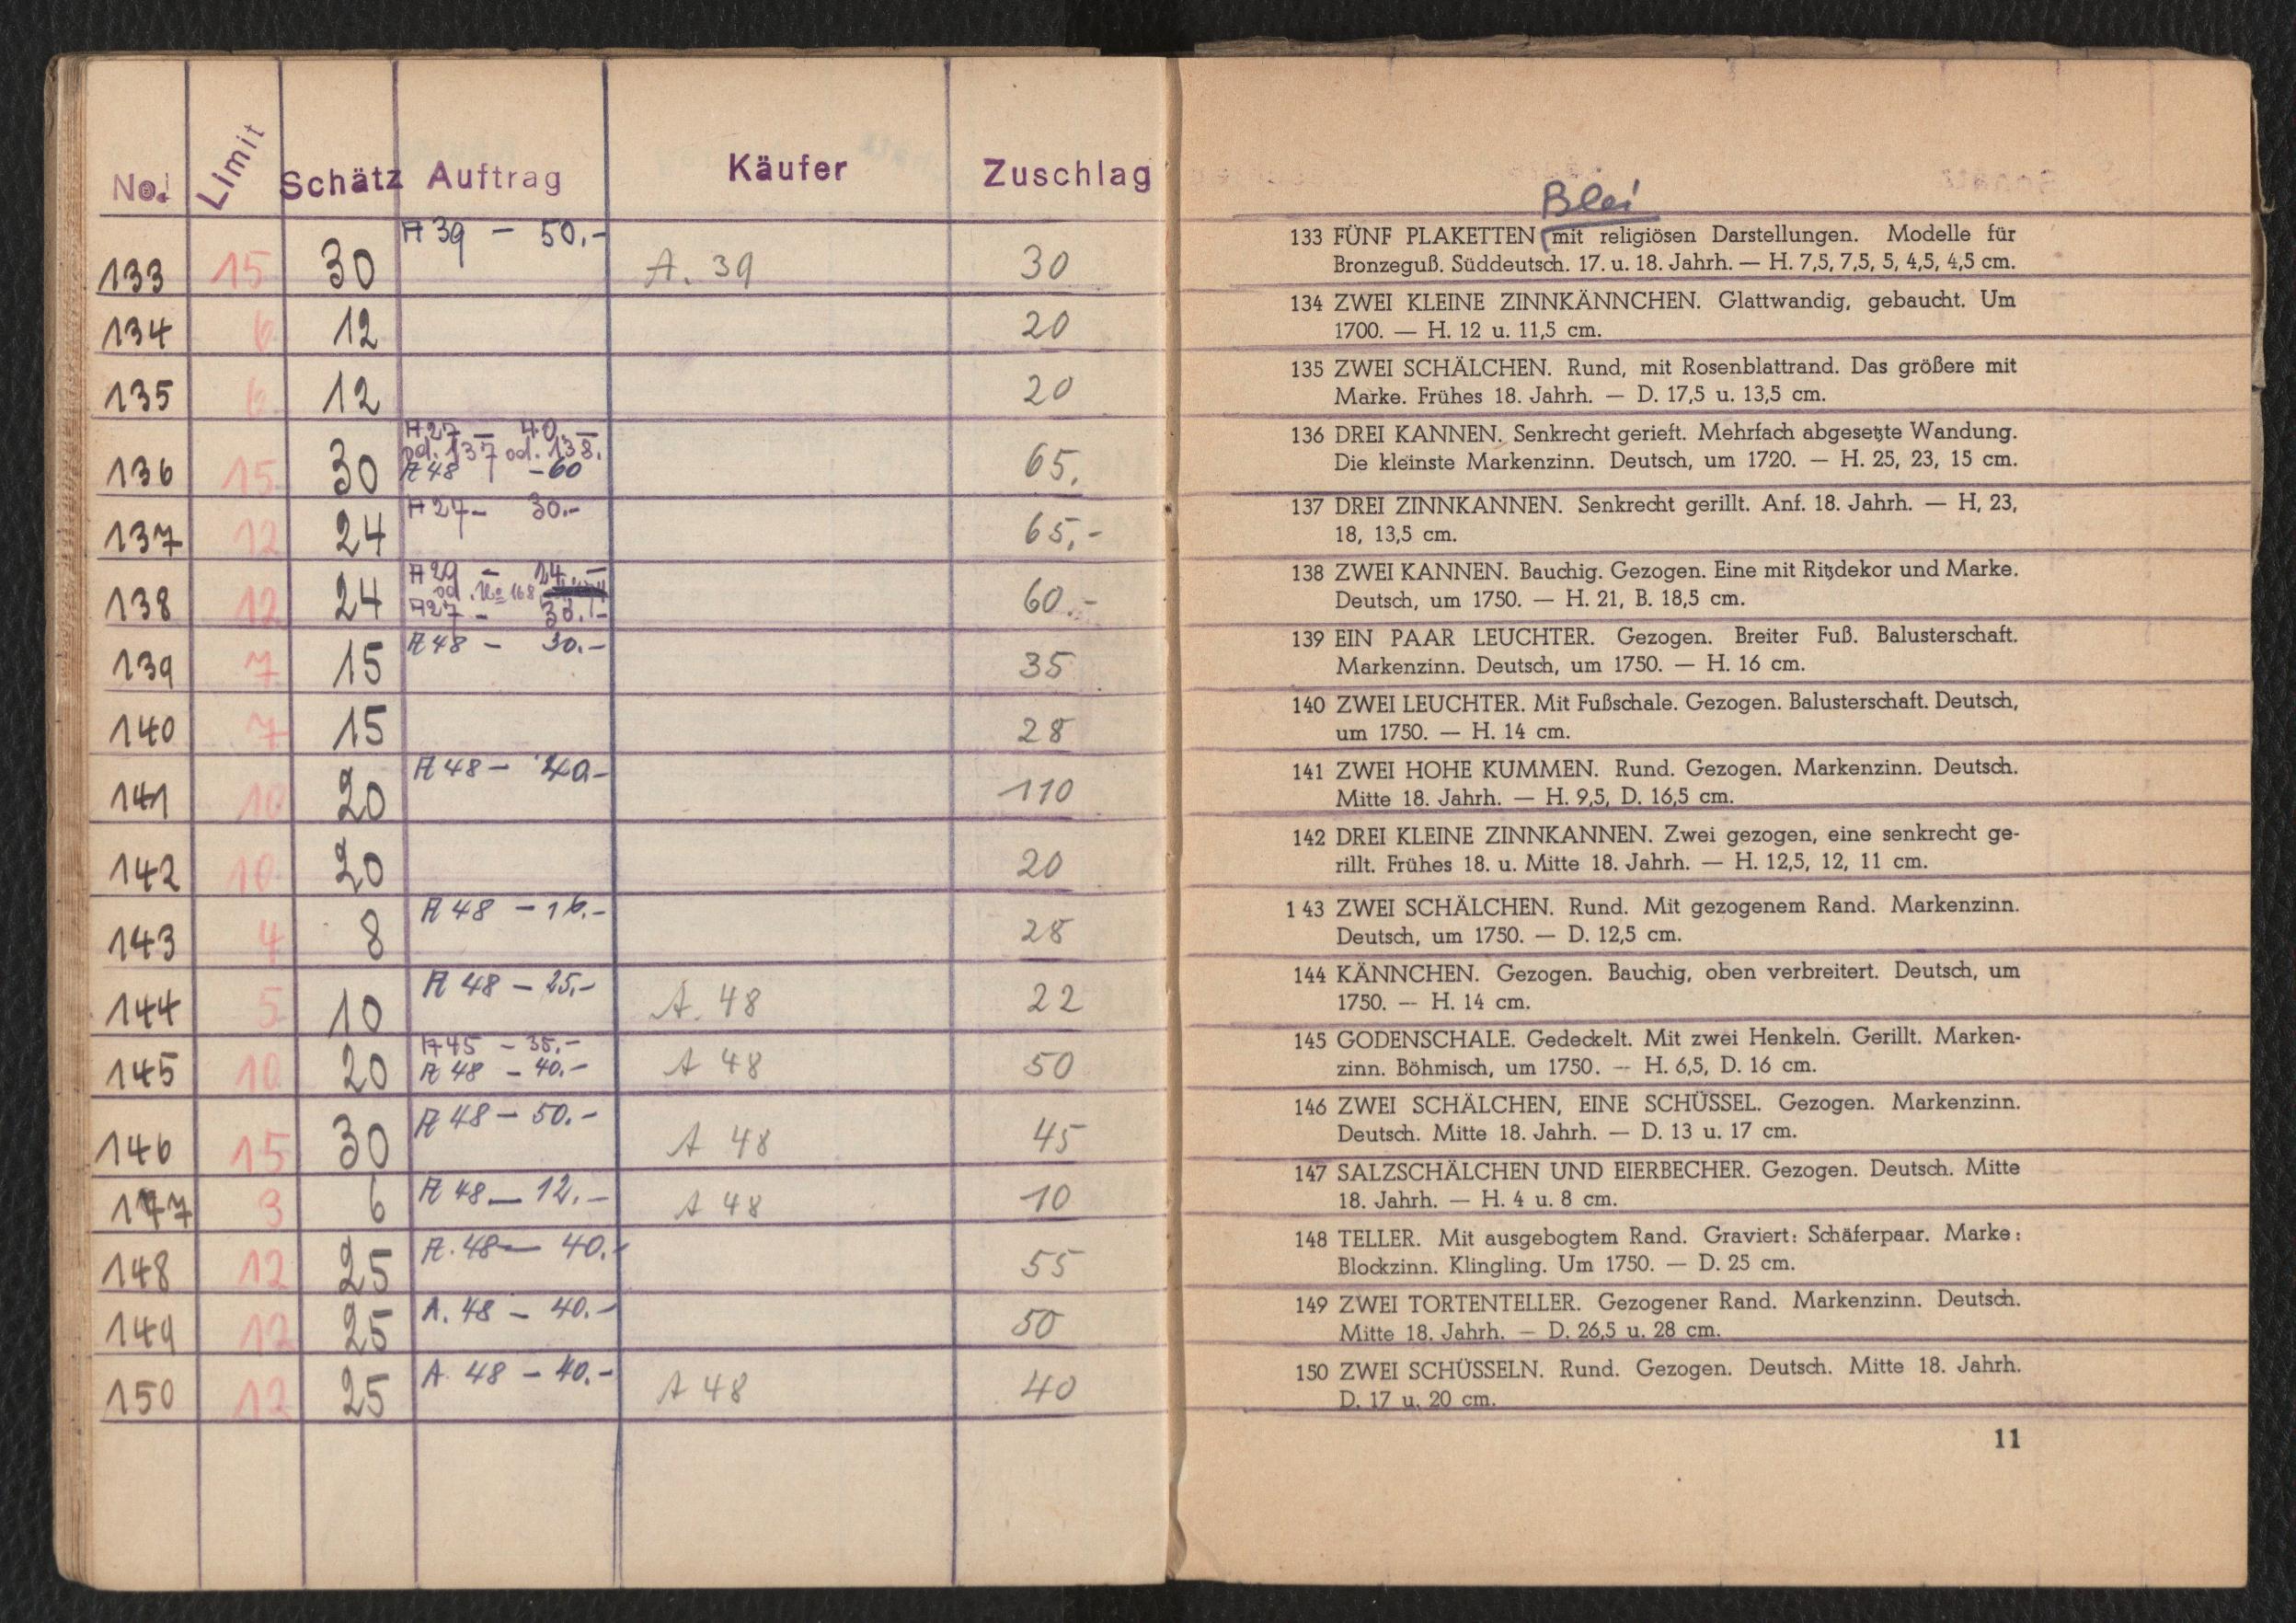 No. Limit Schätz Auftrag Käufer Zuschlag
A 39 – 50.-
133 15 30 A. 39 30
134 6 12 20
135 6 12 20
A 27 – 40.–
od. 137 od. 138.
136 15 30 A 48 – 60 65.
A 27 – 30.-
137 12 24 65,-
A 29 – 24.–
od. No 168
138 12 24 A 27 – 30.- 60.-
139 7 15 A 48 – 30.- 35
140 7 15 28
A 48 – 40.-
141 10 20 110
142 10 20 20
A 48 – 16.-
143 4 8 28
A 48 – 25.-
144 5 10 A. 48 22
A 45 – 35.-
145 10 20 A 48 – 40.- A 48 50
A 48 – 50.-
146 15 30 A 48 45
147 3 6 A 48 – 12.– A 48 10
A. 48 – 40.-
148 12 25 55
149 12 25 A. 48 – 40.- 50
A. 48 – 40.-
150 12 25 A 48 40
Blei
133 FÜNF PLAKETTEN mit religiösen Darstellungen. Modelle für
Bronzeguß. Süddeutsch. 17. u. 18. Jahrh. — H. 7,5, 7,5, 5, 4,5, 4,5 cm.
134 ZWEI KLEINE ZINNKÄNNCHEN. Glattwandig, gebaucht. Um
1700. — H. 12 u. 11,5 cm.
135 ZWEI SCHÄLCHEN. Rund, mit Rosenblattrand. Das größere mit
Marke. Frühes 18. Jahrh. — D. 17,5 u. 13,5 cm.
136 DREI KANNEN. Senkrecht gerieft. Mehrfach abgesetzte Wandung.
Die kleinste Markenzinn. Deutsch, um 1720. — H. 25, 23, 15 cm.
137 DREI ZINNKANNEN. Senkrecht gerillt. Anf. 18. Jahrh. — H, 23,
18, 13,5 cm.
138 ZWEI KANNEN. Bauchig. Gezogen. Eine mit Ritzdekor und Marke.
Deutsch, um 1750. — H. 21, B. 18,5 cm.
139 EIN PAAR LEUCHTER. Gezogen. Breiter Fuß. Balusterschaft.
Markenzinn. Deutsch, um 1750. — H. 16 cm.
140 ZWEI LEUCHTER. Mit Fußschale. Gezogen. Balusterschaft. Deutsch,
um 1750. — H. 14 cm.
141 ZWEI HOHE KUMMEN. Rund. Gezogen. Markenzinn. Deutsch.
Mitte 18. Jahrh. — H. 9,5, D. 16,5 cm.
142 DREI KLEINE ZINNKANNEN. Zwei gezogen, eine senkrecht ge-
rillt. Frühes 18. u. Mitte 18. Jahrh. — H. 12,5, 12, 11 cm.
1 43 ZWEI SCHÄLCHEN. Rund. Mit gezogenem Rand. Markenzinn.
Deutsch, um 1750. — D. 12,5 cm.
144 KÄNNCHEN. Gezogen. Bauchig, oben verbreitert. Deutsch, um
1750. — H. 14 cm.
145 GODENSCHALE. Gedeckelt. Mit zwei Henkeln. Gerillt. Marken-
zinn. Böhmisch, um 1750. — H. 6,5, D. 16 cm.
146 ZWEI SCHÄLCHEN, EINE SCHÜSSEL. Gezogen. Markenzinn.
Deutsch. Mitte 18. Jahrh. — D. 13 u. 17 cm.
147 SALZSCHÄLCHEN UND EIERBECHER. Gezogen. Deutsch. Mitte
18. Jahrh. — H. 4 u. 8 cm.
148 TELLER. Mit ausgebogtem Rand. Graviert: Schäferpaar. Marke:
Blockzinn. Klingling. Um 1750. — D. 25 cm.
149 ZWEI TORTENTELLER. Gezogener Rand. Markenzinn. Deutsch.
Mitte 18. Jahrh. — D. 26,5 u. 28 cm.
150 ZWEI SCHÜSSELN. Rund. Gezogen. Deutsch. Mitte 18. Jahrh.
D. 17 u. 20 cm.
11